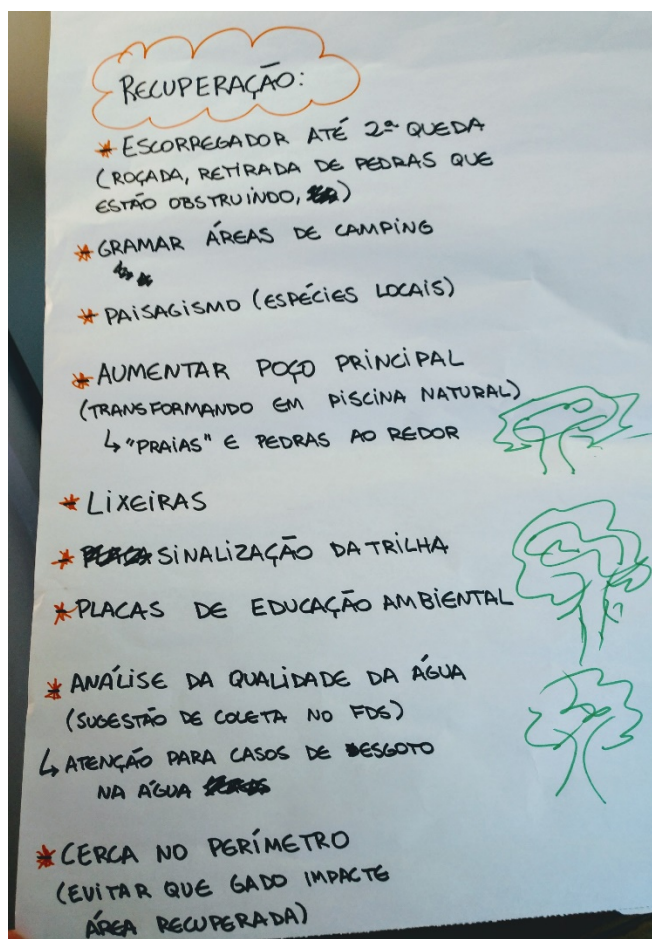 RECUPERAÇÃO:
* ESCORREGADOR ATÉ 2ª QUEDA
(ROÇADA, RETIRADA DE PEDRAS QUE
ESTÃO OBSTRUINDO, )
* GRAMAR ÁREAS DE CAMPING
* PAISAGISMO (ESPÉCIES LOCAIS)
* AUMENTAR POÇO PRINCIPAL
(TRANSFORMANDO EM PISCINA NATURAL)
↳ "PRAIAS" E PEDRAS AO REDOR
* LIXEIRAS
* SINALIZAÇÃO DA TRILHA
* PLACAS DE EDUCAÇÃO AMBIENTAL
* ANÁLISE DA QUALIDADE DA ÁGUA
(SUGESTÃO DE COLETA NO FDS)
↳ ATENÇÃO PARA CASOS DE ESGOTO
NA ÁGUA
* CERCA NO PERÍMETRO
(EVITAR QUE GADO IMPACTE
ÁREA RECUPERADA)